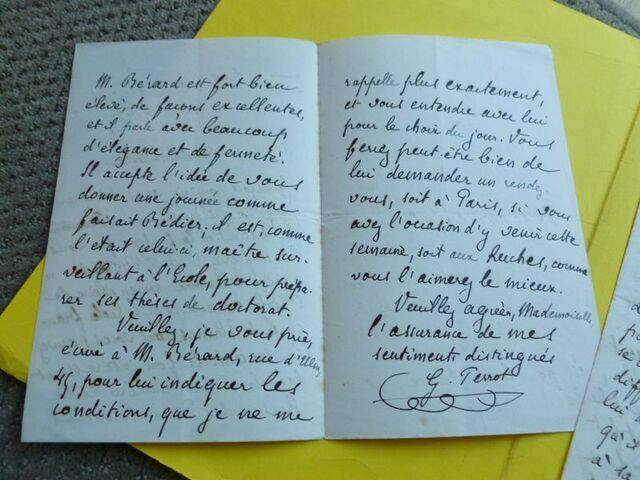 M. Bérard est fort bien
élevé, de façons excellentes,
et il parle avec beaucoup
d'élégance et de fermeté.
Il accepte l'idée de vous
donner une journée comme
faisait Bédier; il est, comme
l'était celui-ci, maître sur-
veillant à l'Ecole, pour prépa-
rer ses thèses de doctorat.
Veuillez, je vous prie,
écrire à M. Bérard, rue d'Ulm,
45, pour lui indiquer les
conditions, que je ne me
rappelle plus exactement,
et vous entendre avec lui
pour le choix du jour. Vous
ferez peut être bien de
lui demander un rendez
vous, soit à Paris, si vous
avez l'occasion d'y venir cette
semaine, soit aux Ruches, comme
vous l'aimerez le mieux.
Veuillez agréer, Mademoiselle,
l'assurance de mes
sentiments distingués
G. Perrot
lui
à